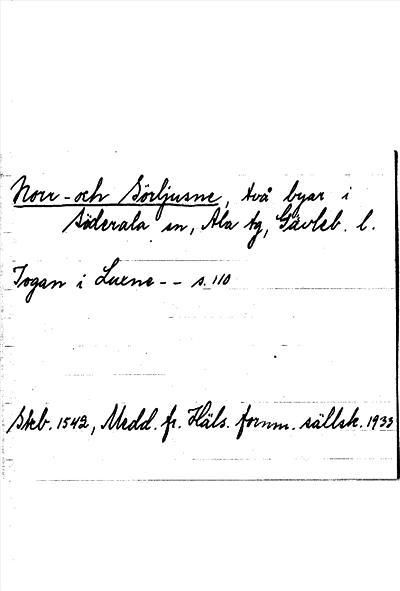 Norr- och Sörljusne, två byar i
Söderala sn, Ala tg, Gävleb. l.
Jogan i Lusne -- s. 110
Skb. 1542, Medd. fr. Häls. fornm. sällsk. 1933